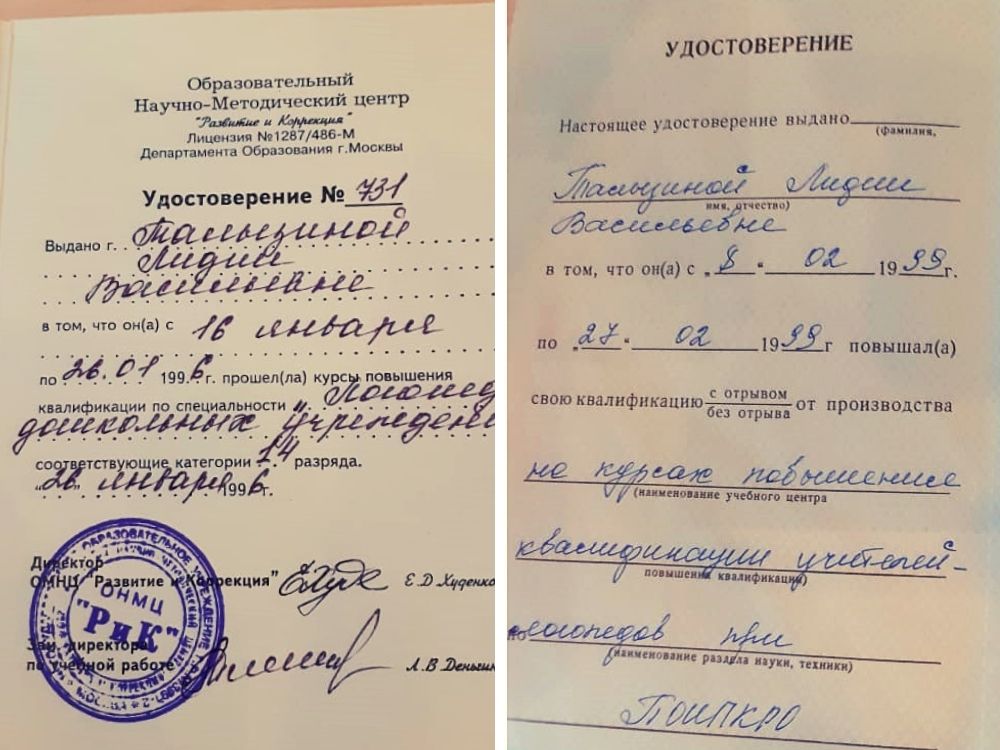 Образовательный
Научно-Методический центр
"Развитие и Коррекция"
Лицензия №1287/486-М
Департамента Образования г.Москвы
Удостоверение № 731
Выдано г. Талызиной
Лидии
Васильевне
в том, что он(а) с 16 января
по 26.01 1996.г. прошел(ла) курсы повышения
квалификации по специальности Логопед
дошкольных учреждени
соответствующие категории 14 разряда.
"26" января 1996г.
Директор
ОМНЦ "Развитие и Коррекция" Е.Д Худенко
Зам. директора
по учебной работе Л.В Деньги
ОНМЦ
"РиК"
УДОСТОВЕРЕНИЕ
Настоящее удостоверение выдано
(фамилия,
Талызиной Лидии
имя, отчество)
Васильевне
в том, что он(а) с „8“ 02 1999г.
по „27“ 02 1999г повышал(а)
свою квалификацию с отрывом
без отрыва от производства
на курсах повышения
(наименование учебного центра
квалификации учителей-
повышения квалификации)
по логопедов при
(наименование раздела науки, техники)
ПОИПКРО